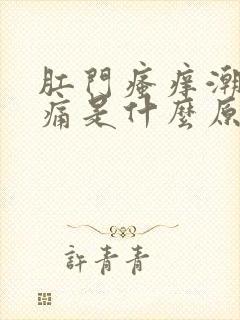 肛門瘙癢潮
痛是什麼原
許青青